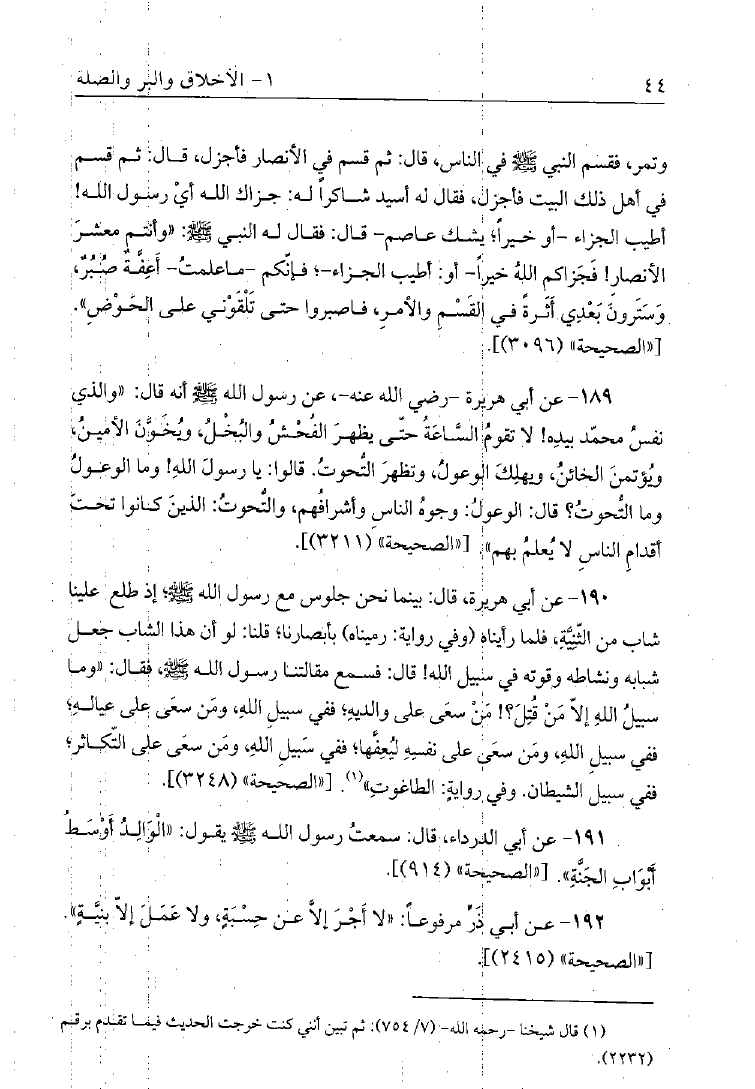 ٤٤ ١- الأخلاق والبر والصلة
وتمر، فقسم النبي ﷺ في الناس، قال: ثم قسم في الأنصار فأجزل، قال: ثم قسم
في أهل ذلك البيت فأجزل، فقال له أسيد شاكراً له: جزاك الله أيْ رسول الله!
أطيب الجزاء -أو خيراً؛ يشك عاصم- قال: فقال له النبي ﷺ: «وأنتم معشرَ
الأنصار! فَجَزاكم اللهُ خيراً- أو: أطيب الجزاء-؛ فإنّكم -ماعلمتُ- أَعِفَّةٌ صُبُرٌ،
وَسَتَرونَ بَعْدِي أَثَرةً في القَسْمِ والأمرِ، فاصبروا حتى تَلْقَوْني على الحَوْضِ».
[«الصحيحة» (٣٠٩٦)].
١٨٩- عن أبي هريرة -رضي الله عنه-، عن رسول الله ﷺ أنه قال: «والذي
نفسُ محمّد بيدِه! لا تقومُ السَّاعَةُ حتّى يظهرَ الفُحْشُ والبُخْلُ، ويُخَوَّنَ الأمينُ،
ويُؤتمنَ الخائنُ، ويهلِكَ الوعولُ، وتظهرَ التُّحوتُ. قالوا: يا رسولَ اللهِ! وما الوعولُ
وما التُّحوتُ؟ قال: الوعولُ: وجوهُ الناسِ وأشرافُهم، والتُّحوتُ: الذينَ كانوا تحتَ
أقدامِ الناسِ لا يُعلمُ بهم». [«الصحيحة» (٣٢١١)].
١٩٠- عن أبي هريرة، قال: بينما نحن جلوس مع رسول الله ﷺ؛ إذ طلع علينا
شاب من الثَّنِيَّةِ، فلما رأيناه (وفي رواية: رميناه) بأبصارنا؛ قلنا: لو أن هذا الشاب جعل
شبابه ونشاطه وقوته في سبيل الله! قال: فسمع مقالتنا رسول الله ﷺ، فقال: «وما
سبيلُ اللهِ إلاّ مَنْ قُتِلَ؟! مَنْ سعَى على والديهِ؛ ففي سبيلِ اللهِ، ومَن سعَى على عيالِهِ؛
ففي سبيلِ اللهِ، ومَن سعَى على نفسِهِ ليُعِفَّها؛ ففي سَبيلِ اللهِ، ومَن سعَى على التّكاثرِ؛
ففي سبيل الشيطان. وفي روايةٍ: الطاغوتِ»(١). [«الصحيحة» (٣٢٤٨)].
١٩١- عن أبي الدرداء، قال: سمعتُ رسول الله ﷺ يقول: «الْوَالِدُ أَوْسَطُ
أَبْوَابِ الجَنَّةِ». [«الصحيحة» (٩١٤)].
١٩٢- عن أبي ذَرٍّ مرفوعاً: «لا أَجْرَ إلاَّ عن حِسْبَةٍ، ولا عَمَلَ إلاّ بنِيَّةٍ».
[«الصحيحة» (٢٤١٥)].
(١) قال شيخنا -رحمه الله- (٧/ ٧٥٤): ثم تبين أنني كنت خرجت الحديث فيما تقدم برقم
(٢٢٣٢).